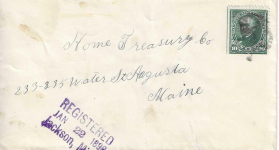 Home Treasury Co
233-235 Water St Augusta
Maine
REGISTERED
JAN 22
Jackson,